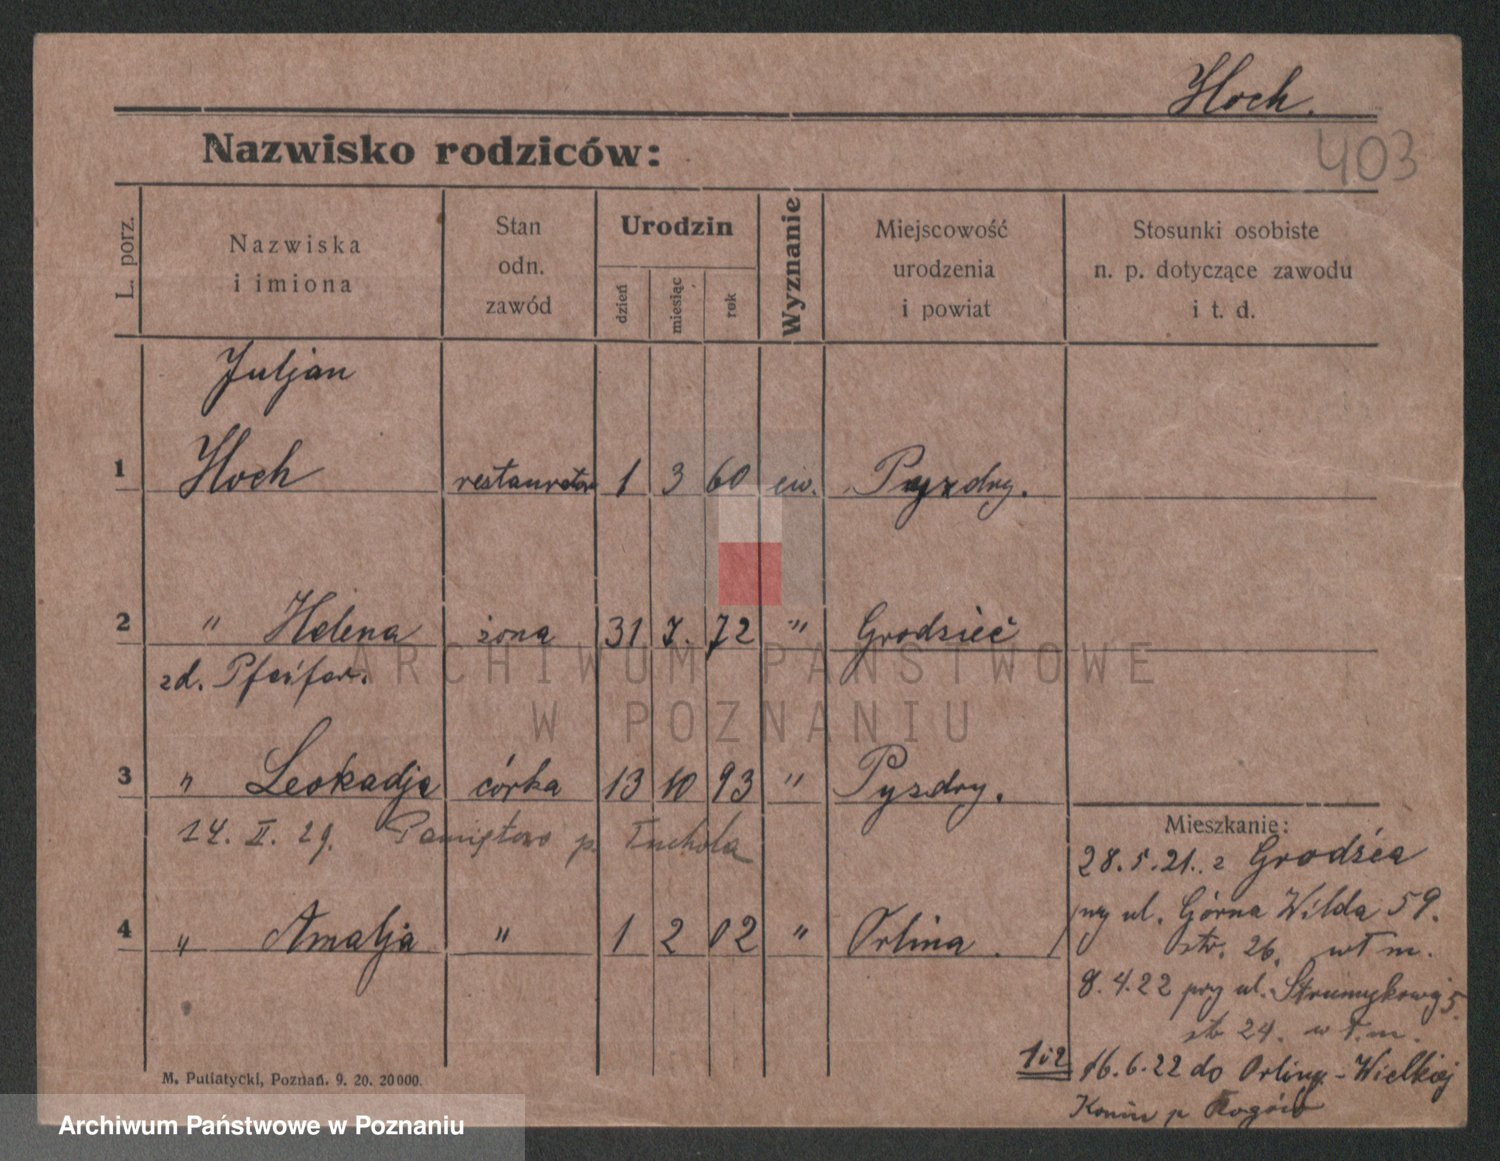 Hoch.
403
Nazwisko rodziców:
L. porz.
Nazwiska
i imiona
Stan
odn.
zawód
Urodzin
dzień
miesiąc
rok
Wyznanie
Miejscowość
urodzenia
i powiat
Stosunki osobiste
n. p. dotyczące zawodu
i t. d.
Juljan
1 Hoch restaurator 1 3 60 ew. Pyzdry.
2 " Helena żona 31 7. 72 " Grodzieć
zd. Pfeifer.
3 " Leokadja córka 13 10 93 " Pyzdry.
14. II. 29. Pamiętowo p. Tuchola
4 " Amalja " 1 2 02 " Orlina.
Mieszkanie:
28.5.21. z Grodźca
przy ul. Górna Wilda 59.
str. 26. wł m.
8.4.22 przy ul. Strumykowej 5.
str 24. w ł. m.
1 i 2 16.6.22 do Orliny-Wielkiej
Konin p
M. Putiatycki, Poznań. 9. 20. 20000.
ARCHIWUM PAŃSTWOWE
W POZNANIU
Archiwum Państwowe w Poznaniu